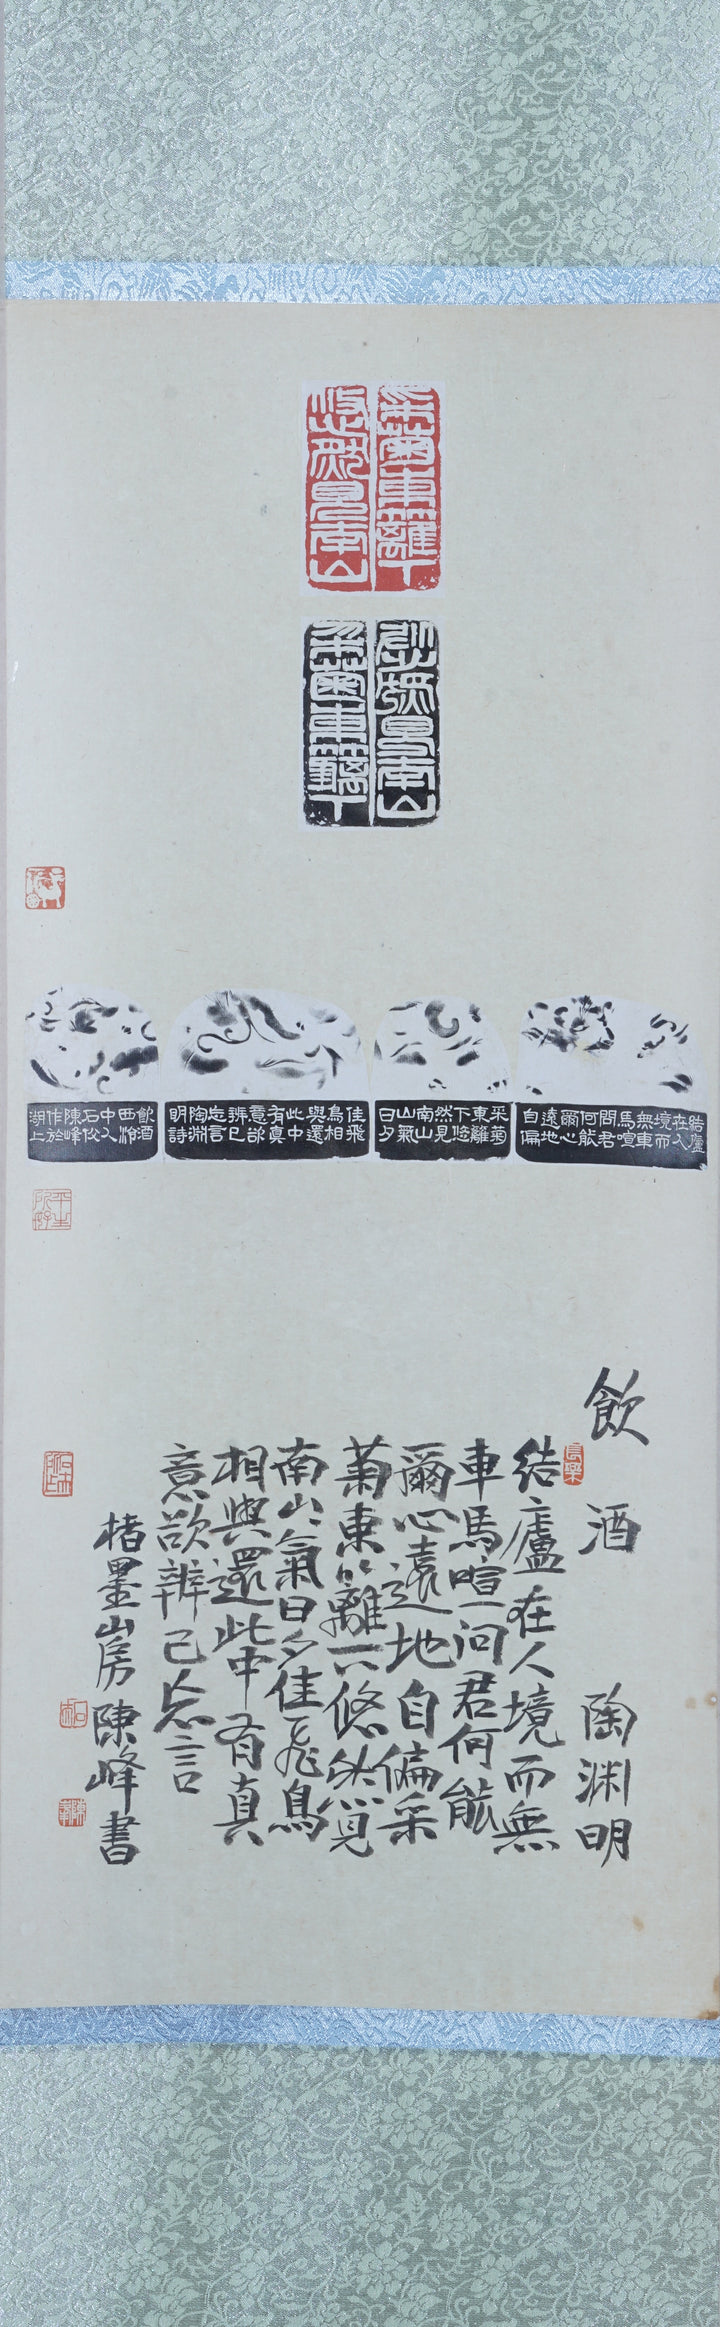 采菊東籬下
悠然見南山
悠然見南山
采菊東籬下
結廬
在人
境而
無車
馬喧
問君
何能
爾心
遠地
自偏
采菊
東籬
下悠
然見
南山
山氣
日夕
佳飛
鳥相
與還
此中
有真
意欲
辨已
忘言
陶淵
明詩
飲酒
西泠
中人
陳峰
作於
湖上
平生所好
飲酒 陶渊明
長樂
結廬在人境而無
車馬喧問君何能
爾心遠地自偏采
菊東籬下悠然見
南山〻氣日夕佳飛鳥
相與還此中有真
意欲辨已忘言
楮墨山房陳峰書